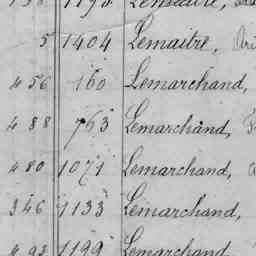 5 1404 Lemaitre,
456 160 Lemarchand,
488 763 Lemarchand,
480 1071 Lemarchand,
346 1133 Lemarchand,
493 1199 Lemarchand